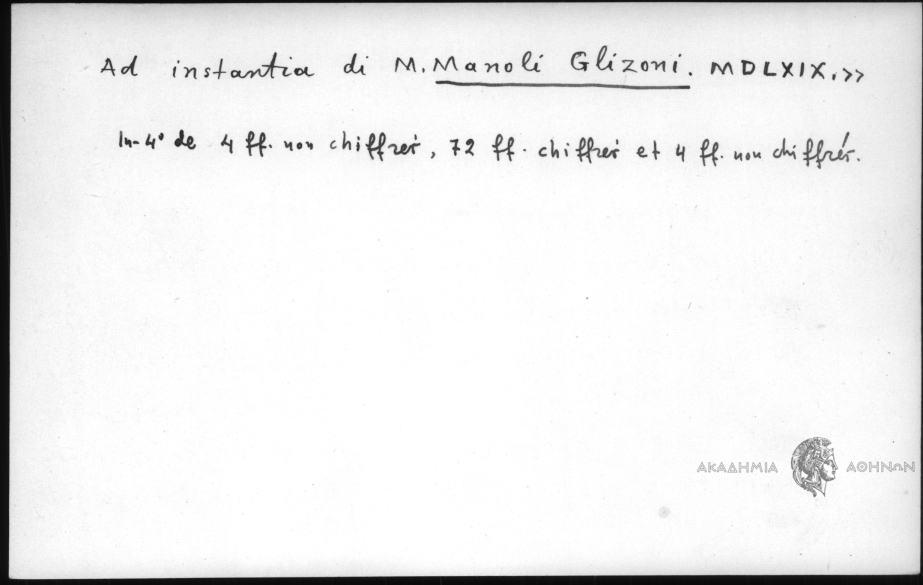 Ad instantia di M. Manoli Glizoni. MDLXIX.»
In-4° de 4 ff. non chiffrés, 72 ff. chiffrés et 4 ff. non chiffrés.
ΑΚΑΔΗΜΙΑ ΑΘΗΝΩΝ